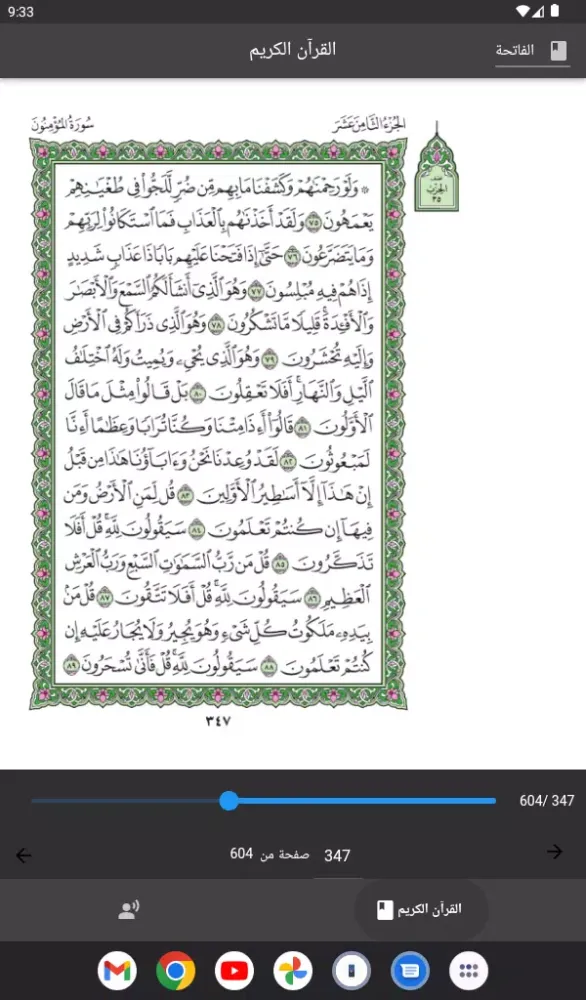 9:33
القرآن الكريم
الفاتحة
سُورَةُ المُؤْمِنُون
الجُزْءُ الثَّامِنَ عَشَرَ
نصف
الحزب
٣٥
۞ وَلَوْ رَحِمْنَٰهُمْ وَكَشَفْنَا مَا بِهِم مِّن ضُرٍّ لَّلَجُّوا۟ فِى طُغْيَٰنِهِمْ
يَعْمَهُونَ ٧٥ وَلَقَدْ أَخَذْنَٰهُم بِٱلْعَذَابِ فَمَا ٱسْتَكَانُوا۟ لِرَبِّهِمْ
وَمَا يَتَضَرَّعُونَ ٧٦ حَتَّىٰٓ إِذَا فَتَحْنَا عَلَيْهِم بَابًا ذَا عَذَابٍ شَدِيدٍ
إِذَا هُمْ فِيهِ مُبْلِسُونَ ٧٧ وَهُوَ ٱلَّذِىٓ أَنشَأَ لَكُمُ ٱلسَّمْعَ وَٱلْأَبْصَٰرَ
وَٱلْأَفْـِٔدَةَ ۚ قَلِيلًا مَّا تَشْكُرُونَ ٧٨ وَهُوَ ٱلَّذِى ذَرَأَكُمْ فِى ٱلْأَرْضِ
وَإِلَيْهِ تُحْشَرُونَ ٧٩ وَهُوَ ٱلَّذِى يُحْىِۦ وَيُمِيتُ وَلَهُ ٱخْتِلَٰفُ
ٱلَّيْلِ وَٱلنَّهَارِ ۚ أَفَلَا تَعْقِلُونَ ٨٠ بَلْ قَالُوا۟ مِثْلَ مَا قَالَ
ٱلْأَوَّلُونَ ٨١ قَالُوٓا۟ أَءِذَا مِتْنَا وَكُنَّا تُرَابًا وَعِظَٰمًا أَءِنَّا
لَمَبْعُوثُونَ ٨٢ لَقَدْ وُعِدْنَا نَحْنُ وَءَابَآؤُنَا هَٰذَا مِن قَبْلُ
إِنْ هَٰذَآ إِلَّآ أَسَٰطِيرُ ٱلْأَوَّلِينَ ٨٣ قُل لِّمَنِ ٱلْأَرْضُ وَمَن
فِيهَآ إِن كُنتُمْ تَعْلَمُونَ ٨٤ سَيَقُولُونَ لِلَّهِ ۚ قُلْ أَفَلَا
تَذَكَّرُونَ ٨٥ قُلْ مَن رَّبُّ ٱلسَّمَٰوَٰتِ ٱلسَّبْعِ وَرَبُّ ٱلْعَرْشِ
ٱلْعَظِيمِ ٨٦ سَيَقُولُونَ لِلَّهِ ۚ قُلْ أَفَلَا تَتَّقُونَ ٨٧ قُلْ مَنۢ
بِيَدِهِۦ مَلَكُوتُ كُلِّ شَىْءٍ وَهُوَ يُجِيرُ وَلَا يُجَارُ عَلَيْهِ إِن
كُنتُمْ تَعْلَمُونَ ٨٨ سَيَقُولُونَ لِلَّهِ ۚ قُلْ فَأَنَّىٰ تُسْحَرُونَ ٨٩
٣٤٧
604/ 347
347 صفحة من 604
القرآن الكريم